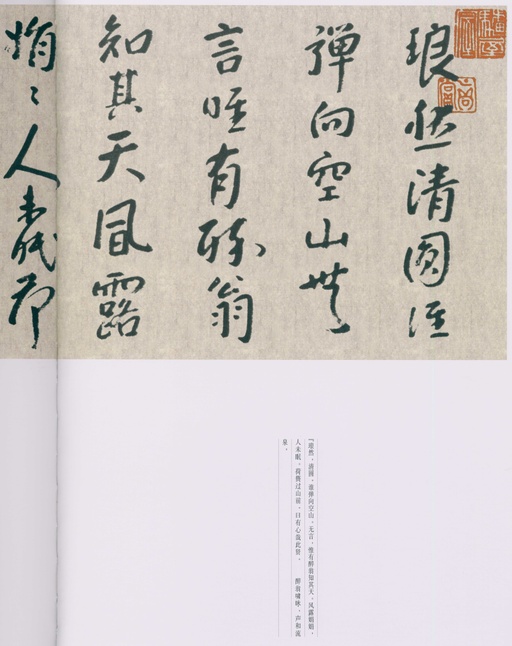 琅然清圓誰
彈向空山無
言唯有醉翁
知其天風露
娟〻人未眠荷
「琅然，清圆，谁弹向空山，无言，惟有醉翁知其天，风露娟娟，
人未眠，荷蒉过山前，曰有心哉此贤。　醉翁啸咏，声和流
泉。